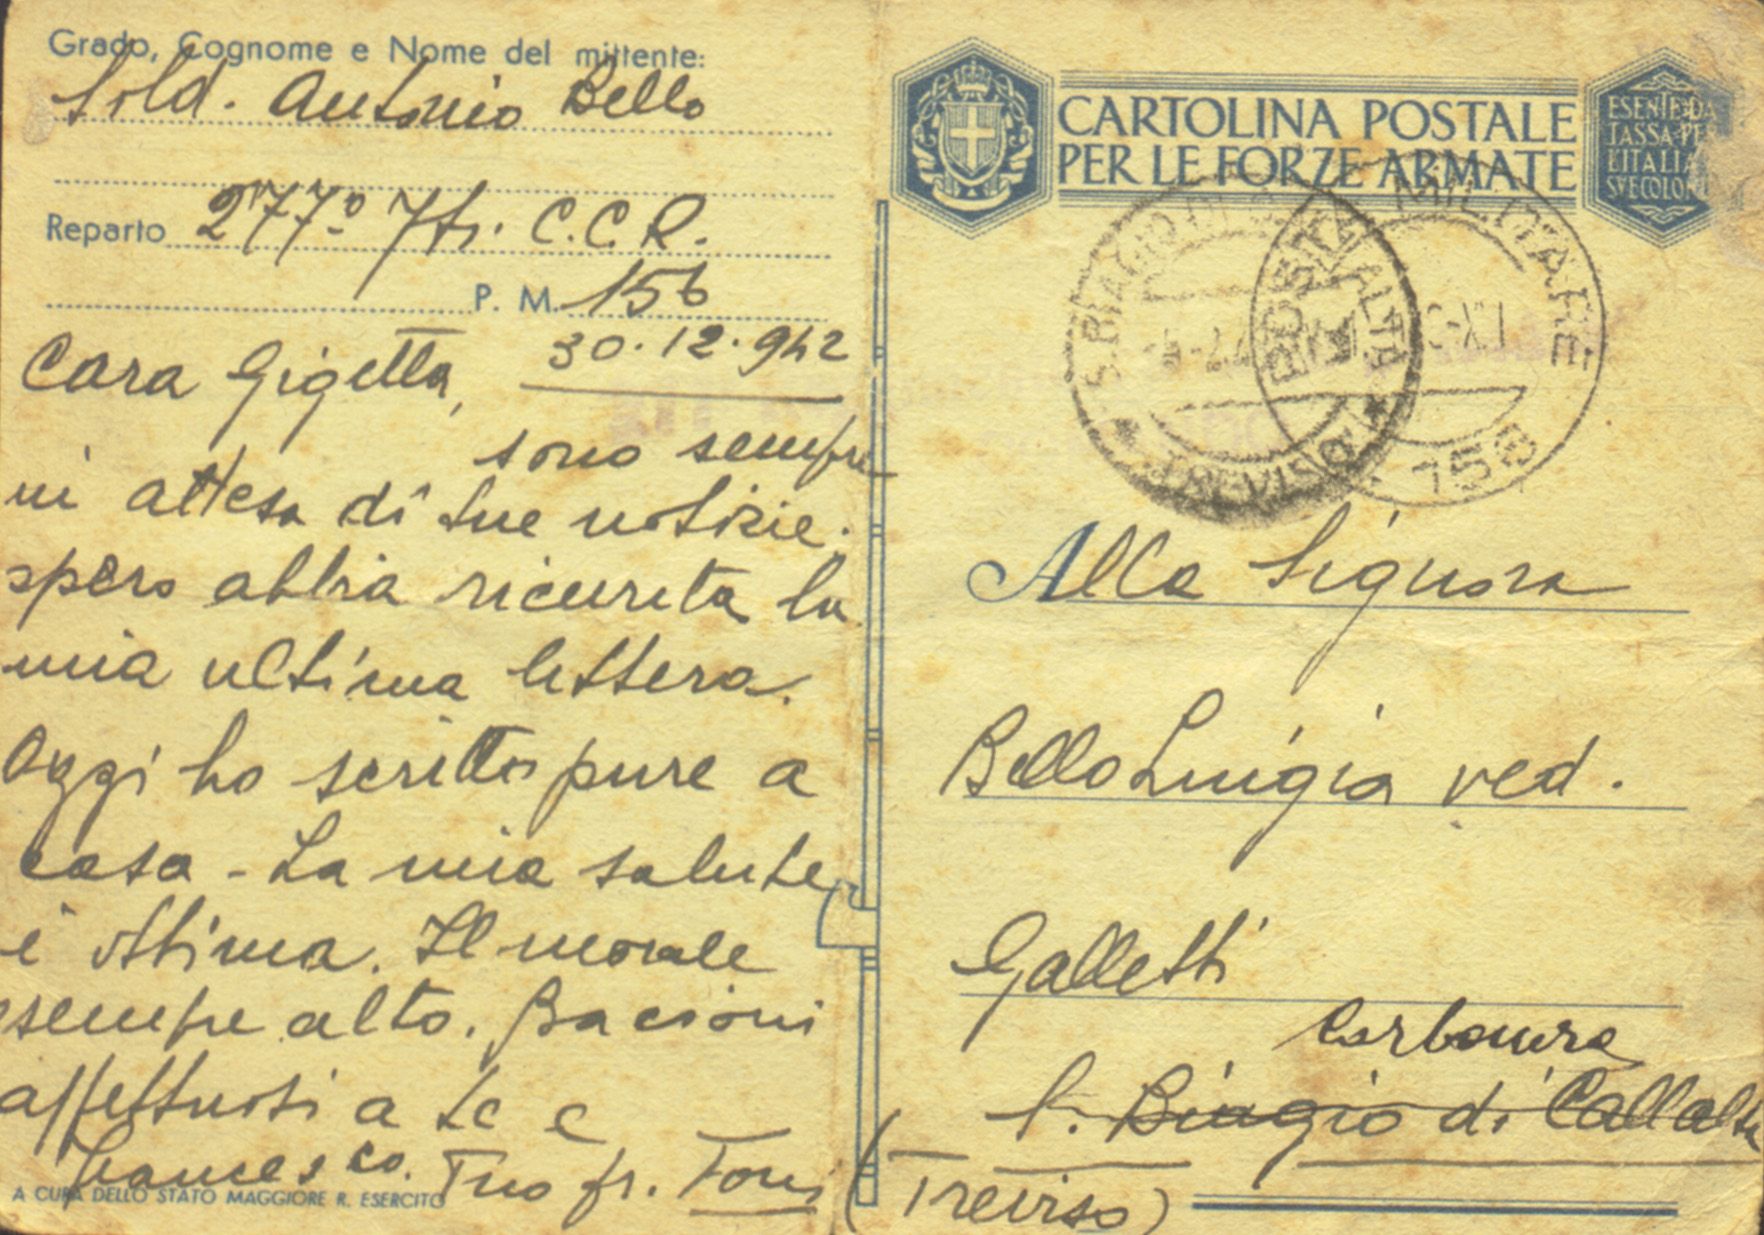 Grado, Cognome e Nome del mittente:
Sold. Antonio Bello
Reparto 277º Ftr. C.C.R.
P. M. 156
30.12.942
Cara Gigetta,
sono sempre
in attesa di tue notizie.
spero abbia ricevuta la
mia ultima lettera.
Oggi ho scritto pure a
casa - La mia salute
è ottima. Il morale
sempre alto. Bacioni
affettuosi a te e
Francesco. Tuo fr. Toni
A CURA DELLO STATO MAGGIORE R. ESERCITO
CARTOLINA POSTALE
PER LE FORZE ARMATE
ESENTE DA
TASSA PE
L'ITALIA
S.VE COLO
S. BIAGIO DI CALLALTA
TREVISO
POSTA MILITARE
158
Alla Signora
Bello Luigia ved.
Galletti
Carbonera
S. Biagio di Callalta
(Treviso)